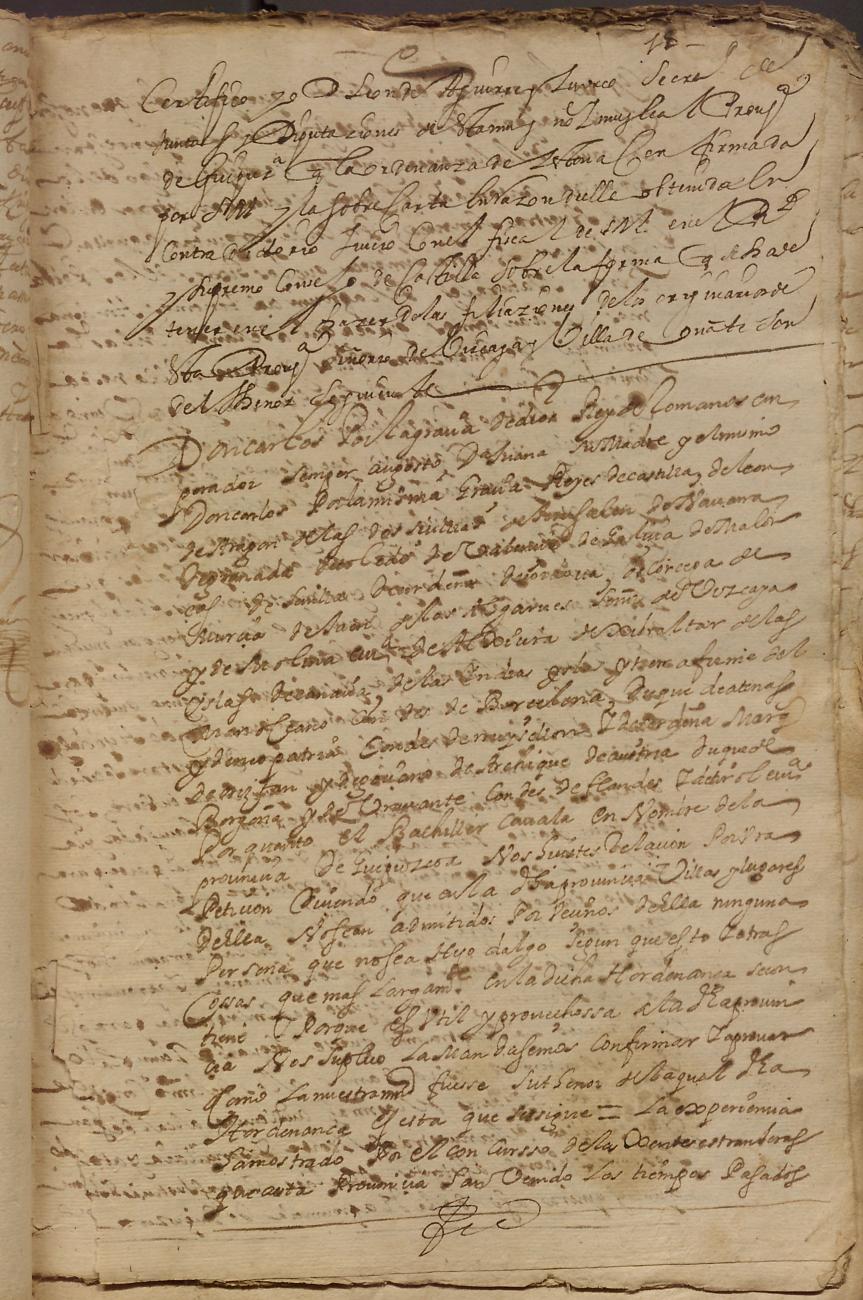 18
Certifico yo D Leon de Aguirre y Zurco Secre de
Juntas y Diputaziones de sta muy noble y muy leal Prouª
de Guipuzª q la ordenanza de Zestona Confirmada
por SM y la sobre Carta en razon della obtenida en
Contradictorio Juicio Con el fiscal de SM en el Rl
y Supremo Consejo de Castilla sobre la forma q se ha de
tener en el hazer de las filiaziones de los originarios de
sta Prouª Señorio de Vizcaya y Villa de oñate son
del thenor seguiente
Don carlos Por la graçia de dios Rey de Romanos em
perador semper augusto Doña Juana su Madre y el mismo
Don carlos Por la misma Graçia Reyes de castilla, de leon
de Aragon de las dos sicilias de Jerusalen de Nauarra
de granada de toledo de Valencia de Galicia de Mallor
cas de Seuilla de cerdeña de cordoua de Corcega de
Murcia de Jaen de los Algarues de
y de Molina de Algecira de Gibraltar de las
islas de canaria, de las indias yslas y tierra firme del
mar oceano Condes de Barcelona, Duques de atenas
y de neopatria Condes de ruysellon y de cerdania Marq
Archiduque de austria duque de
Borgoña y de Brauante Condes de flandes y de tirol etcª
Por quanto el Bachiller çauala en Nombre de la
prouinçia De Guipuzcoa Nos hizo relaçion Por su
Petiçion diziendo que en la dha prouinçia Villas y lugares
della No sean admitidos Por Vezinos della ninguna
Persona que no sea Hijo dalgo segun que esto y otras
Cossas que mas Largamte en la dicha Hordenança se con
tiene y Porque es Vtil y prouechossa a la dha prouin
cia Nos Suplico La Mandasemos Confirmar y aprouar
o como La nuestra md fuesse Su thenor de la qual dha
Hordenança es esta que se sigue = La experiençia
a mostrado Por el Con Cursso de las gentes estranjeras
que a esta Prouinçia han Venido Los tiempos Pasados